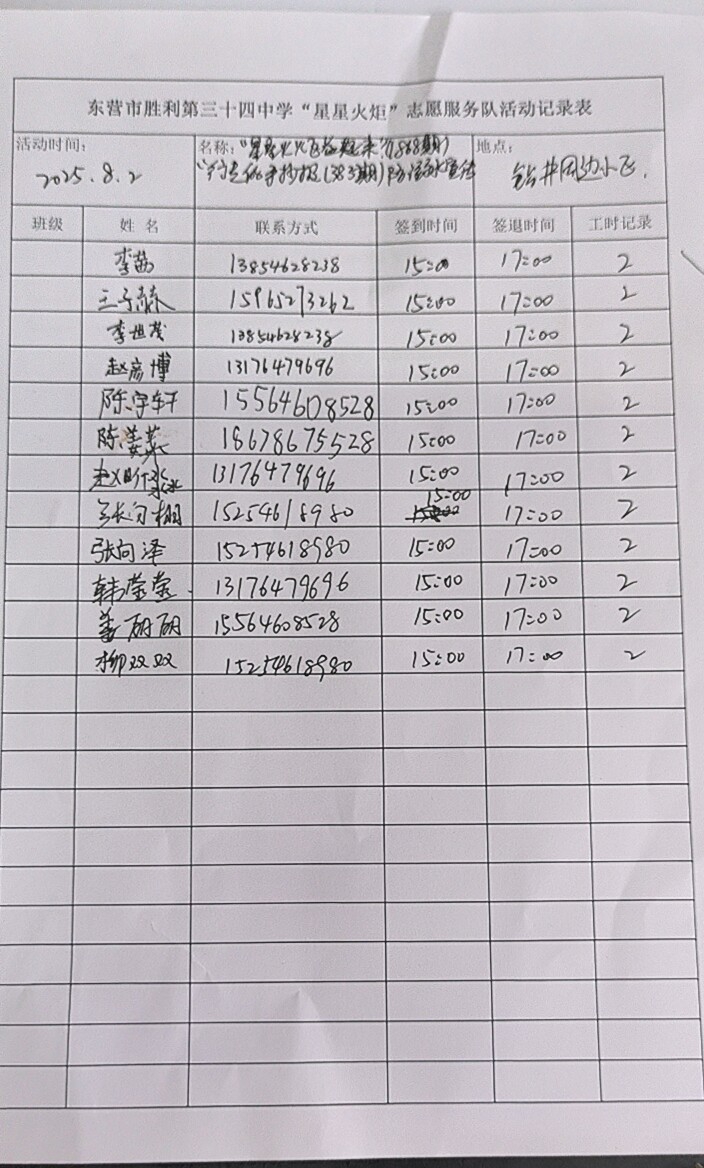 东营市胜利第三十四中学“星星火炬”志愿服务队活动记录表
活动时间: 名称: “星星火火 (1868期) 地点:
2025.8.2 手抄报(383期)防溺水宣传 钻井周边小区.
班级 姓名 联系方式 签到时间 签退时间 工时记录
李茜 13854628238 15:00 17:00 2
王子赫 15965273262 15:00 17:00 2
李世茂 13854628238 15:00 17:00 2
赵彦博 13176479696 15:00 17:00 2
陈宇轩 15564608528 15:00 17:00 2
陈 18678675528 15:00 17:00 2
赵 13176479696 15:00 17:00 2
张 15254618980 15:00 17:00 2
张向泽 15254618980 15:00 17:00 2
韩莹莹 13176479696 15:00 17:00 2
姜丽丽 15564608528 15:00 17:00 2
柳双双 15254618980 15:00 17:00 2